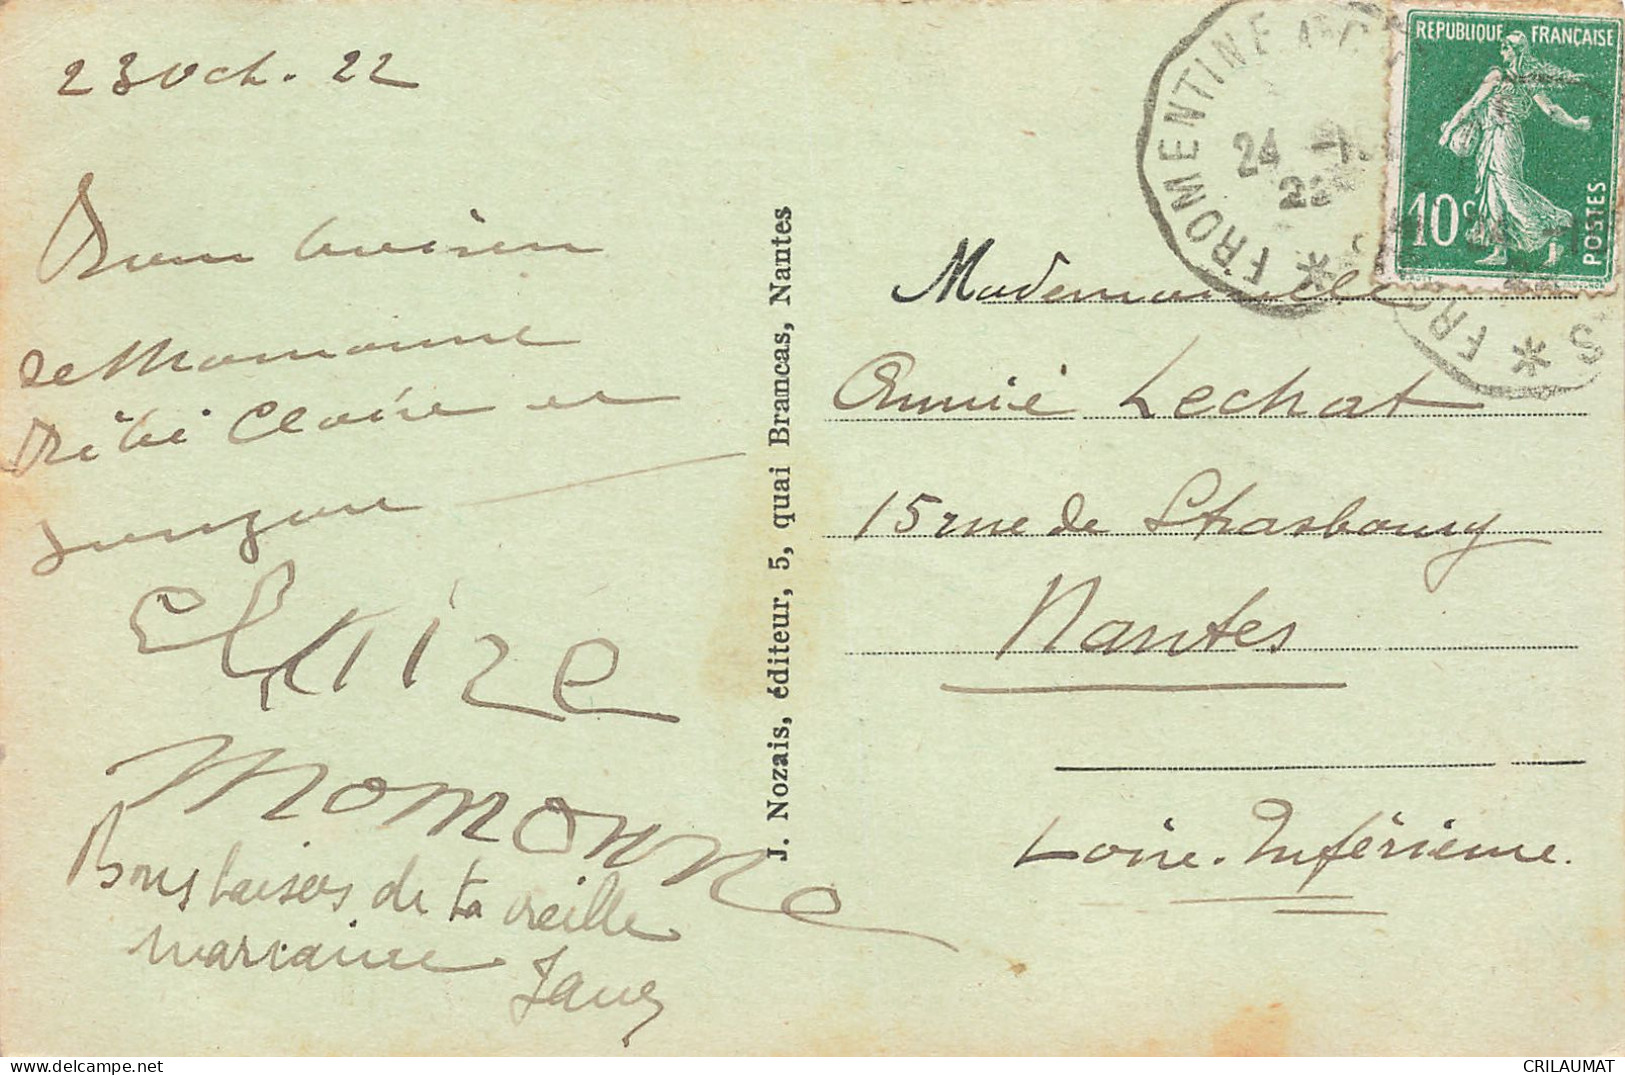 23 Oct. 22
Bons baisers
de Momonne
Bébé Claire et
Claire
Momonne
Bons baisers de ta vieille
marraine
J. Nozais, éditeur, 5, quai Brancas, Nantes
FROMENTINE
24
22
REPUBLIQUE FRANÇAISE
10c
POSTES
Mademoiselle
Annie Lechat
15 rue de Strasbourg
Nantes
Loire-Inférieure.
CRILAUMAT